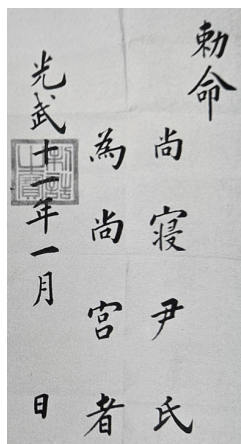 勅命
尚寢尹氏
為尚宮者
光武十一年一月 日